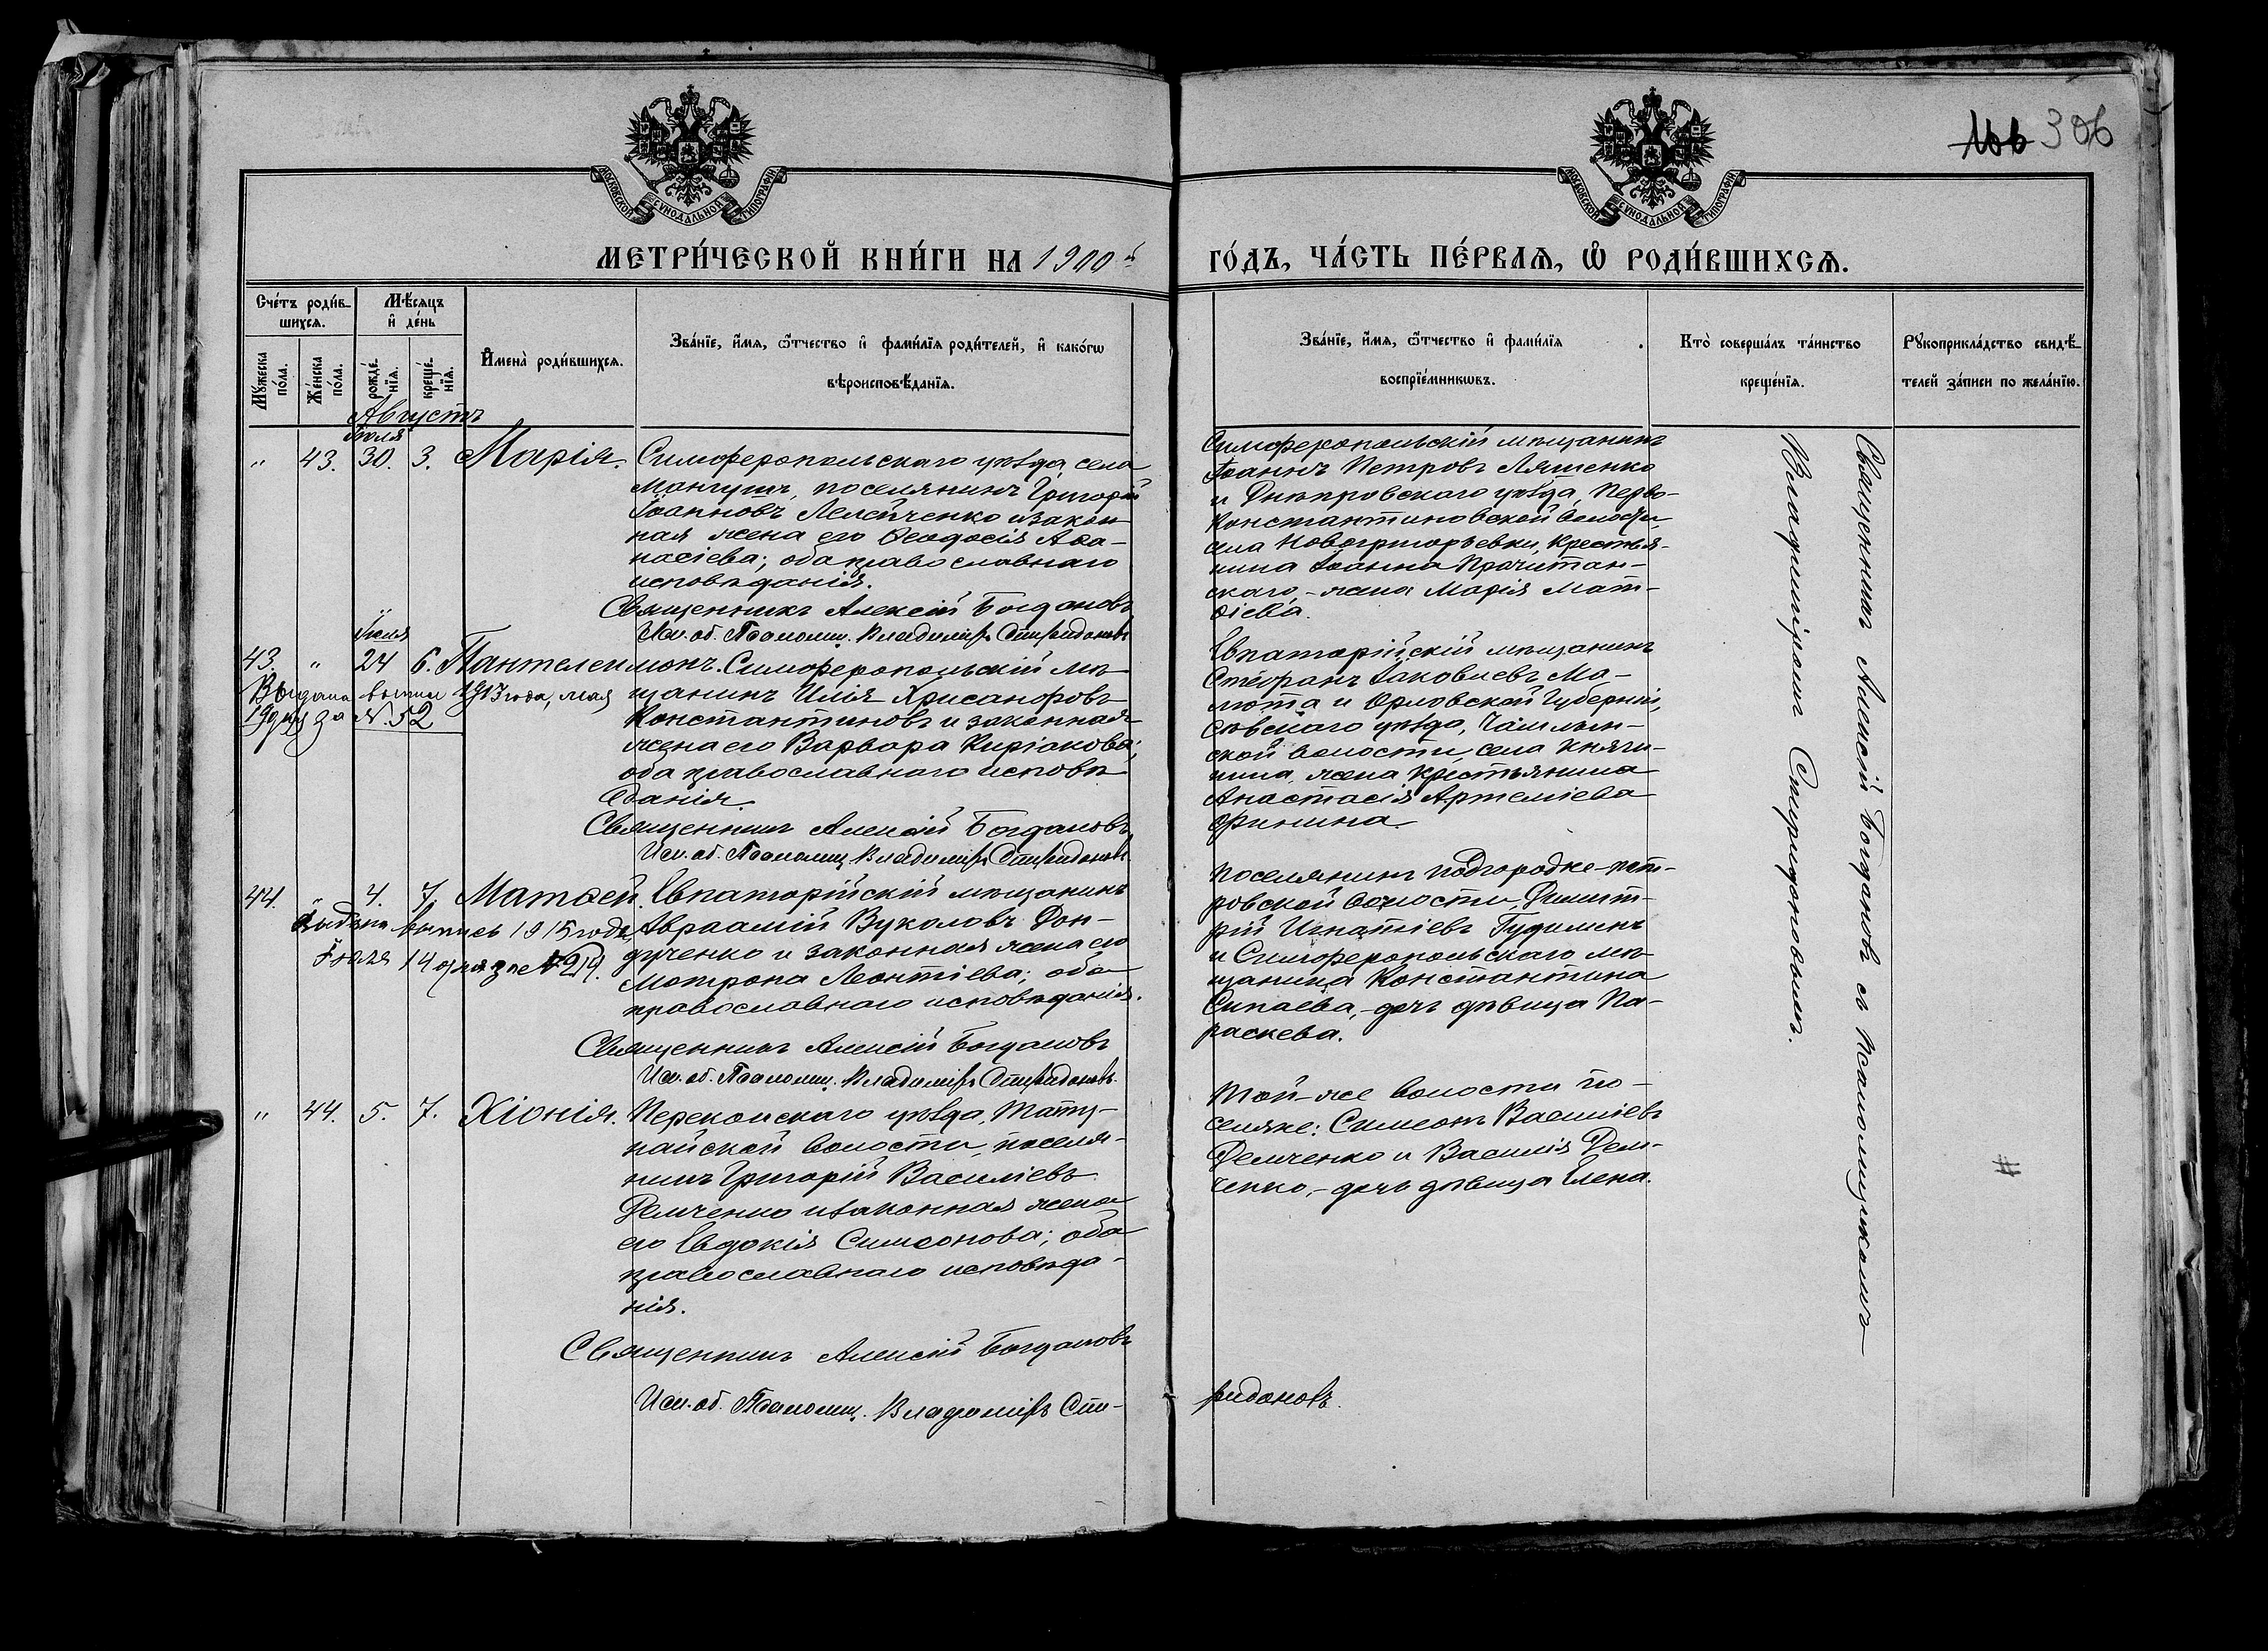 306
МОСКОВСКОЙ СУНОДАЛЬНОЙ ТИПОГРАФІИ
МОСКОВСКОЙ СУНОДАЛЬНОЙ ТИПОГРАФІИ
МЕТРИ́ЧЕСКОЙ КНИ́ГИ НА 1900й
ГО́ДЪ, ЧА́СТЬ ПЕ́РВАѦ, Ѡ҆ РОДИ́ВШИХСѦ.
Сче́тъ роди́в-
шихсѧ.
Мѣ́сѧцъ
и҆ де́нь
Мꙋ́жеска
по́ла.
Же́нска
по́ла.
рожде́-
нїѧ.
креще́-
нїѧ.
И҆мена̀ роди́вшихсѧ.
Зва́нїе, и҆́мѧ, ѻ҆́тчество и҆ фами́лїѧ роди́телей, и҆ како́гѡ
вѣроисповѣ́данїѧ.
Зва́нїе, и҆́мѧ, ѻ҆́тчество и҆ фами́лїѧ
воспрїе́мникѡвъ.
Кто̀ соверша́лъ та́инство
креще́нїѧ.
Рꙋкоприкла́дство свидѣ́-
телей за́писи по жела́нїю.
Августъ
Іюля
„ 43. 30. 3. Марія. Симферопольскаго уѣзда села
Мангушъ, поселянинъ Григорій
Іоанновъ Лелетченко и закон-
ная жена его Ѳеодосія Аѳа-
насіева; оба православнаго
исповѣданія.
Священникъ Алексій Богдановъ
Исп. об. Псаломщ. Владиміръ Спиридоновъ
Симферопольскій мѣщанинъ
Іоаннъ Петровъ Ляшенко
и Днѣпровскаго уѣзда, Перво-
Константиновской волости,
села Новогригорьевки, крестья-
нина Іоанна
скаго, - жена Марія Мат-
ѳіева.
Іюля
43. „ 24 6. Пантелеимонъ. Симферопольскій мѣ-
щанинъ Илія Хрисанфовъ
Константиновъ и законная
жена его Варвара Киріакова;
оба православнаго исповѣ-
данія.
Выдана выпись 1913 года, мая
19 дня за № 52
Священникъ Алексій Богдановъ
Исп. об. Псаломщ. Владиміръ Спиридоновъ
Евпаторійскій мѣщанинъ
Стефанъ Іаковлевъ Ма-
люта и Орловской Губерніи,
Сѣвскаго уѣзда,
ской волости, села Княги-
нина, жена крестьянина
Анастасія Артеміева
Финина.
44. „ 4. 7. Матѳей. Евпаторійскій мѣщанинъ
Авраамій Вуколовъ Дон-
дученко и законная жена его
Мотрона Леонтіева; оба
православнаго исповѣданія.
Выдана выпись 1915 года,
Іюля 14 дня за № 219.
Священникъ Алексій Богдановъ
Исп. об. Псаломщ. Владиміръ Спиридоновъ.
Поселянинъ Подгородне-пет-
ровской волости, Димит-
рій Игнатіевъ Гудилинъ
и Симферопольскаго мѣ-
щанина Константина
Сипаева, - дочь дѣвица Па-
раскева.
„ 44. 5. 7. Хіонія. Перекопскаго уѣзда,
найской волости, поселя-
нинъ Григорій Василіевъ
Демченко и законная жена
его Евдокія Симеонова; оба
православнаго исповѣда-
нія.
Священникъ Алексій Богдановъ
Исп. об. Псаломщ. Владиміръ Спи-
ридоновъ.
Той-же волости по-
селяне: Симеонъ Василіевъ
Демченко и Василія Дем-
ченко, - дочь дѣвица Елена.
Священникъ Алексій Богдановъ съ псаломщикомъ
Владиміромъ Спиридоновымъ.